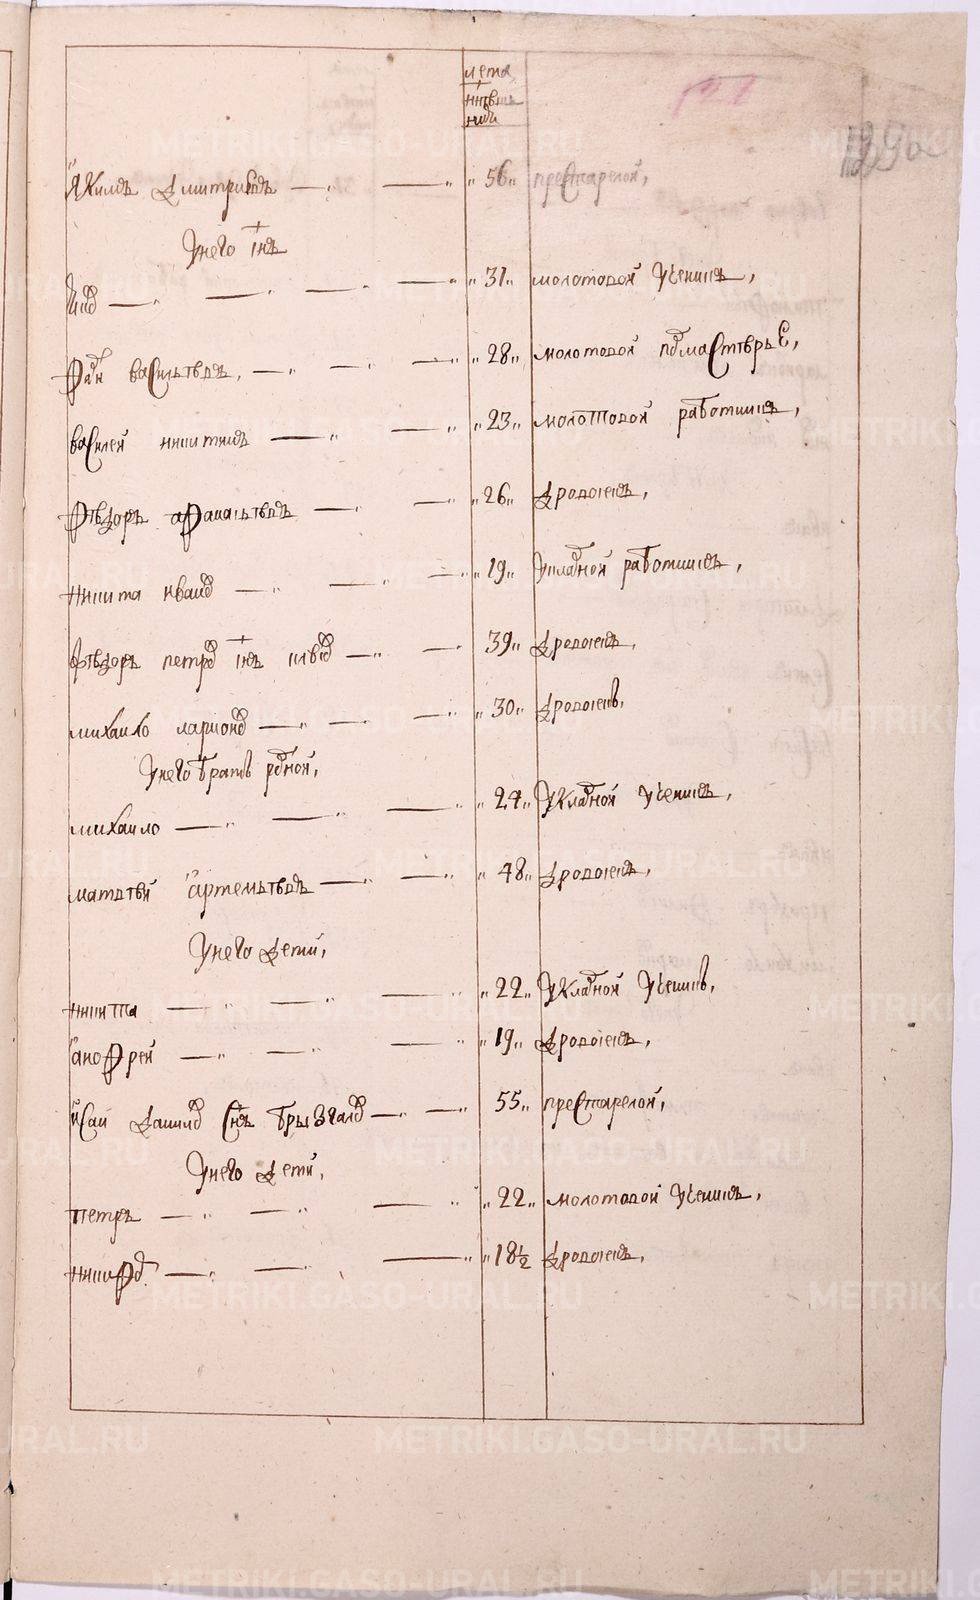 лета
ныне
Якимъ Дмитриевъ 56 престарелой,
У него сн҃ъ
31 молотовой ученикъ,
васильевъ, 28 молотовой подмастерье,
василей никитинъ 23 молотовой работникъ,
Ѳедоръ афанасьевъ 26 дровосекъ,
никита иванов 19 укладной работникъ,
Ѳедоръ петров сн҃ъ 39 дровосекъ,
михайло ларионов 30 дровосекъ,
У него братъ родной,
михайло 24 Укладной ученикъ,
матвѣй артемьевъ 48 дровосекъ,
У него дети,
никита 22 Укладной ученикъ,
анофрей 19 дровосекъ,
исай данилов сн҃ъ брызгалов 55 престарелой,
У него дети,
петръ 22 молотовой ученикъ,
никифор 18½ дровосекъ,
METRIKI.GASO-URAL.RU